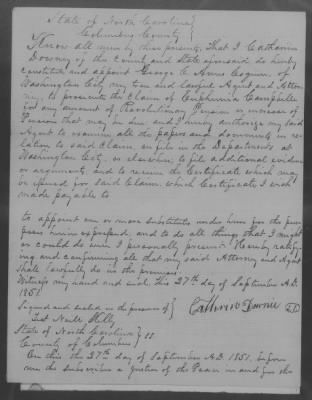 State of North Carolina }
Columbus County }
Know all men by these presents, That I Catharine
Downey of the County and State aforesaid do hereby
constitute and appoint George C. Ames Esquire, of
Washington City, my true and lawful Agent and Attor
ney, to prosecute the Claim of Campbell
for any amount of Revolutionary Pension or increase of
Pension that may be due. and I hereby authorize my said
Agent to examine all the papers and documents in re-
lation to said Claim, on file in the Departments at
Washington City, or elsewhere, to file additional evidence
or arguments, and to receive the Certificate which may
be issued for said Claim, which Certificate I wish
made payable to
to appoint one or more substitutes under him for the pur
poses herein expressed; and to do all things that I might
or could do were I personally present. Hereby ratify-
ing and confirming all that my said Attorney and Agent
shall lawfully do in the premises.
Witness my hand and seal, this 27th day of September A.D.
1851.
Signed and sealed in the presence of }
Test Neill Kelly }
Catharine Downie
State of North Carolina } SS
County of Columbus }
On this the 27th day of September A.D. 1851. before
me the subscriber a Justice of the Peace in and for the